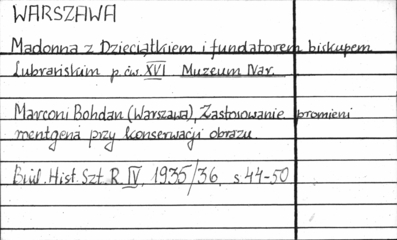 WARSZAWA
Madonna z Dzieciątkiem i fundatorem biskupem
Lubrańskim p. ćw. XVI Muzeum Nar.
Marconi Bohdan (Warszawa), Zastosowanie promieni
rentgena przy konserwacji obrazu.
Biul. Hist. Szt. R. IV, 1935/36, s. 44-50